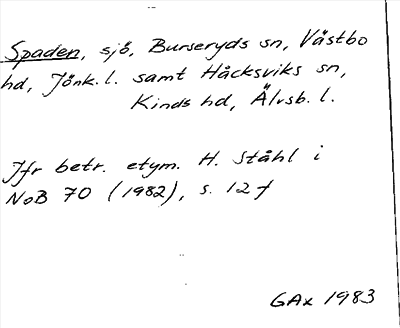 Spaden, sjö, Burseryds sn, Västbo
hd, Jönk. l. samt Håcksviks sn,
Kinds hd, Älvsb. l.
Jfr betr. etym. H. Ståhl i
NoB 70 (1982), s. 12 f
GAx 1983